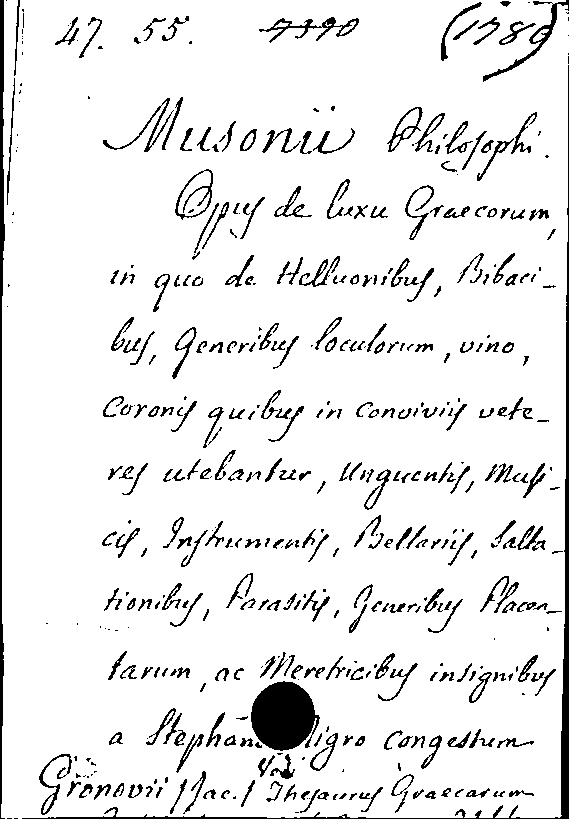 47. 55. 7390 (1789)
Musonii Philosophi.
Opus de luxu Graecorum,
in quo de Helluonibus, Bibaci-
bus, Generibus loculorum, vino,
Coronis quibus in conviviis vete-
res utebantur, Unguentis, Musi-
cis, Instrumentis, Bellariis, Salta-
tionibus, Parasitis, Generibus Placen-
tarum, ac Meretricibus insignibus
a Stephano Nigro congestum
Gronovii /Jac./ Thesaurus Graecarum